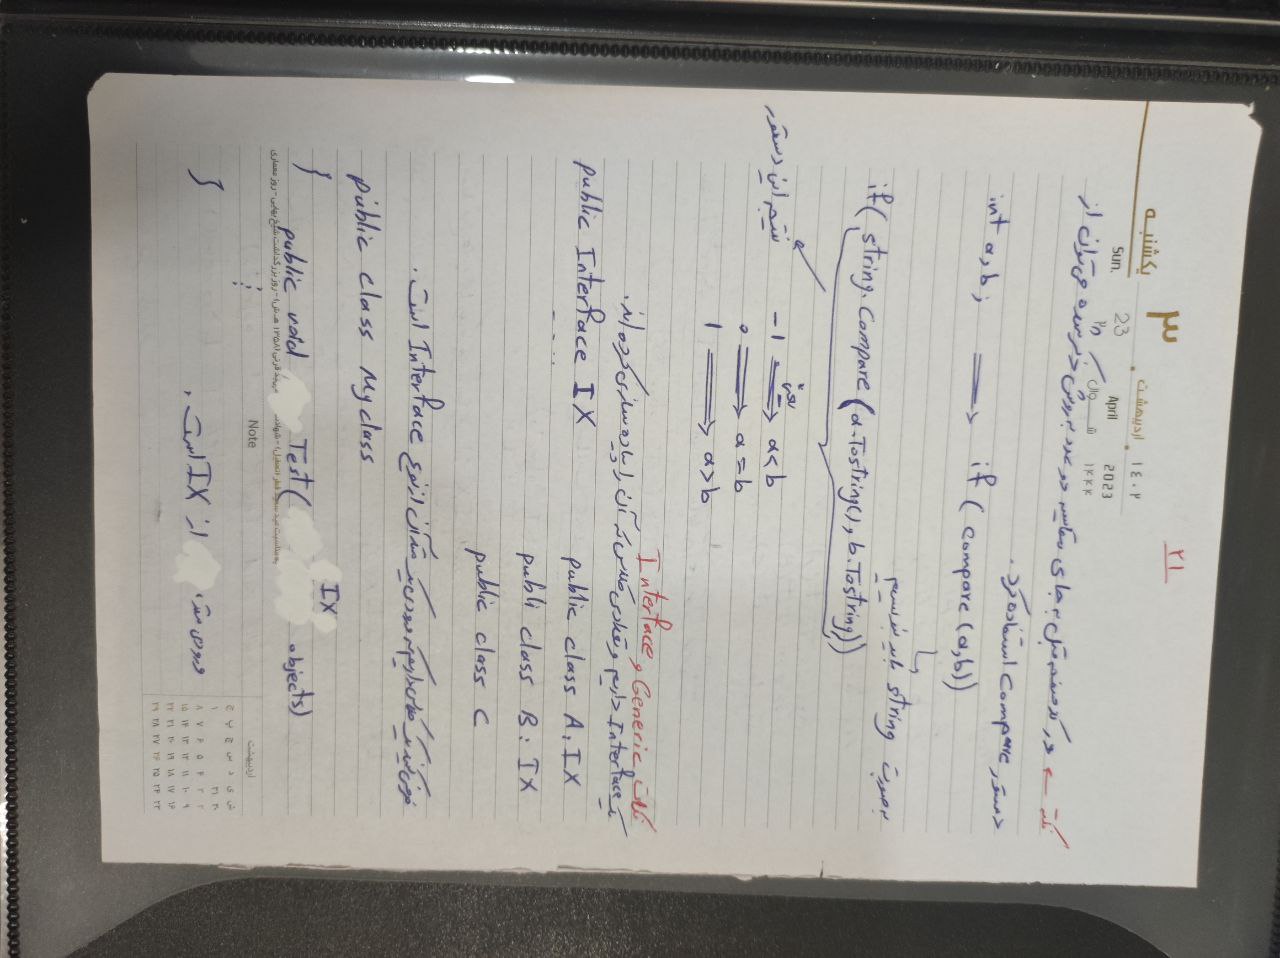 ۲۱
یکشنبه ۳ اردیبهشت ۱۴۰۲
Sun. 23 April 2023
۲ شوال ۱۴۴۴
نکته ← در کد صفحه قبل به جای مقایسه دو عدد به روش ذکر شده می‌توان از
دستور Compare استفاده کرد.
int a,b; ⟹ if ( compare (a,b))
به صورت string باید بنویسیم
if( string. Compare (a.Tostring(), b.Tostring))
نتیجه این دستور
-1 یعنی ⟹ a<b
0 ⟹ a=b
1 ⟹ a>b
نکات Generic و Interface
یک Interface داریم و تعدادی کلاس که آن را پیاده سازی کرده اند.
public Interface IX public class A: IX
publi class B: IX
public class C
فرض کنید یک کلاس داریم که ورودی یک متد آن از نوع Interface است.
public class Myclass
{
public void Test( IX objects)
به مناسبت عید سعید فطر (تعطیل) - شهادت قرنی (۱۳۵۸ هـ.ش) - روز بزرگداشت شیخ بهایی - روز معماری
Note
}
ورودی متد، از IX است.
اردیبهشت
ش ی د س چ پ ج
۳۰ ۳۱ ۱
۲ ۳ ۴ ۵ ۶ ۷ ۸
۹ ۱۰ ۱۱ ۱۲ ۱۳ ۱۴ ۱۵
۱۶ ۱۷ ۱۸ ۱۹ ۲۰ ۲۱ ۲۲
۲۳ ۲۴ ۲۵ ۲۶ ۲۷ ۲۸ ۲۹